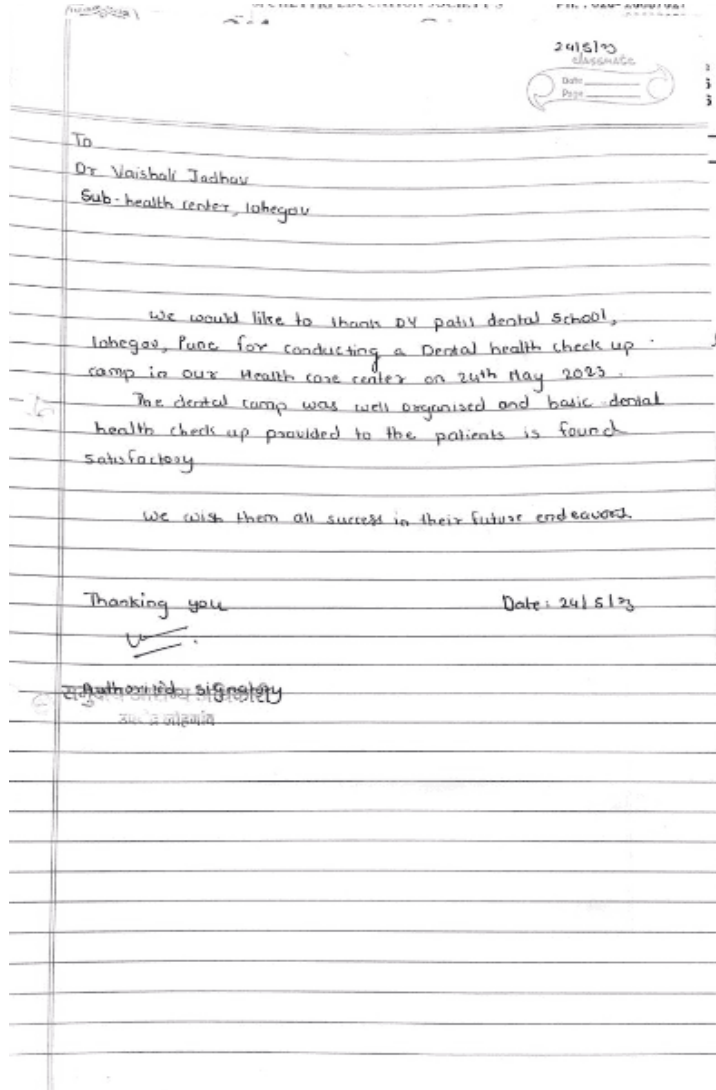 24/5/23
classmate
Date
Page
To
Dr Vaishali Jadhav
Sub-health center, lohegov
We would like to thank DY patil dental school,
lohegav, Pune for conducting a Dental health check up
camp in our Health care center on 24th May 2023.
The dental camp was well organised and basic dental
health check up provided to the patients is found
satisfactory
We wish them all success in their future endeavors.
Thanking you
Date: 24/5/23
Authorized signatory
आरोग्य
लोहगांव